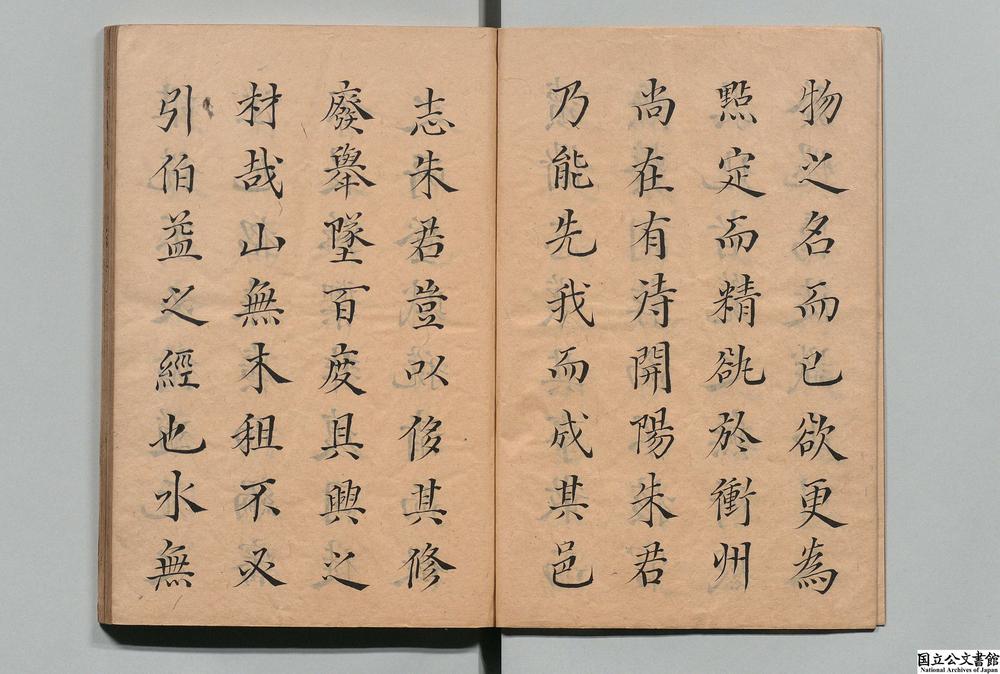 物之名而已欲更為
點定而精𠜇於衝州
尚在有待開陽朱君
乃能先我而成其邑
志朱君豈以侈其修
廢舉墜百度具興之
材哉山無木租不必
引伯益之經也水無
国立公文書館
National Archives of Japan